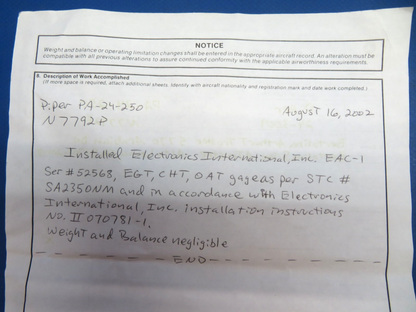 NOTICE
Weight and balance or operating limitation changes shall be entered in the appropriate aircraft record. An alteration must be
compatible with all previous alterations to assure continued conformity with the applicable airworthiness requirements.
8. Description of Work Accomplished
(If more space is required, attach additional sheets. Identify with aircraft nationality and registration mark and date work completed.)
Piper PA-24-250
August 16, 2002
N7792P
Installed Electronics International, Inc. EAC-1
Ser # 52568, EGT, CHT, OAT gageas per STC #
SA2350NM and in accordance with Electronics
International, Inc. installation instructions
No. II 070781-1.
Weight and Balance negligible
END